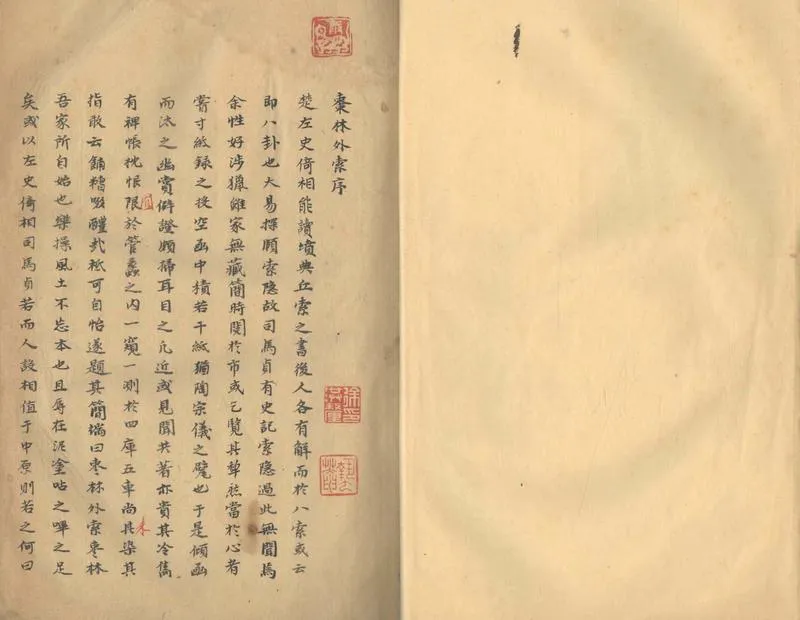 棗林外索序
楚左史倚相能讀墳典丘索之書後人各有解而於八索或云
即八卦也大易探賾索隐故司馬貞有史記索隐過此無聞焉
余性好涉獵雖家無藏簡時閱於市或乞覽其犖然當於心者
嘗寸紙錄之投空函中積若干紙猶陶宗儀之甓也于是傾函
而汰之幽賞僻證頗掃耳目之凡近或見聞共著亦貴其冷雋
有裨帳枕恨限於管蠡之内一窺一測於四庫五車尚其染其
指敢云餔糟啜醴弐袛可自怡遂題其簡端曰枣林外索枣林
吾家所自始也樂操風土不忘本也且辱在泥塗呫之嗶之足
矣或以左史倚相司馬貞若而人設相值于中原則若之何曰
未